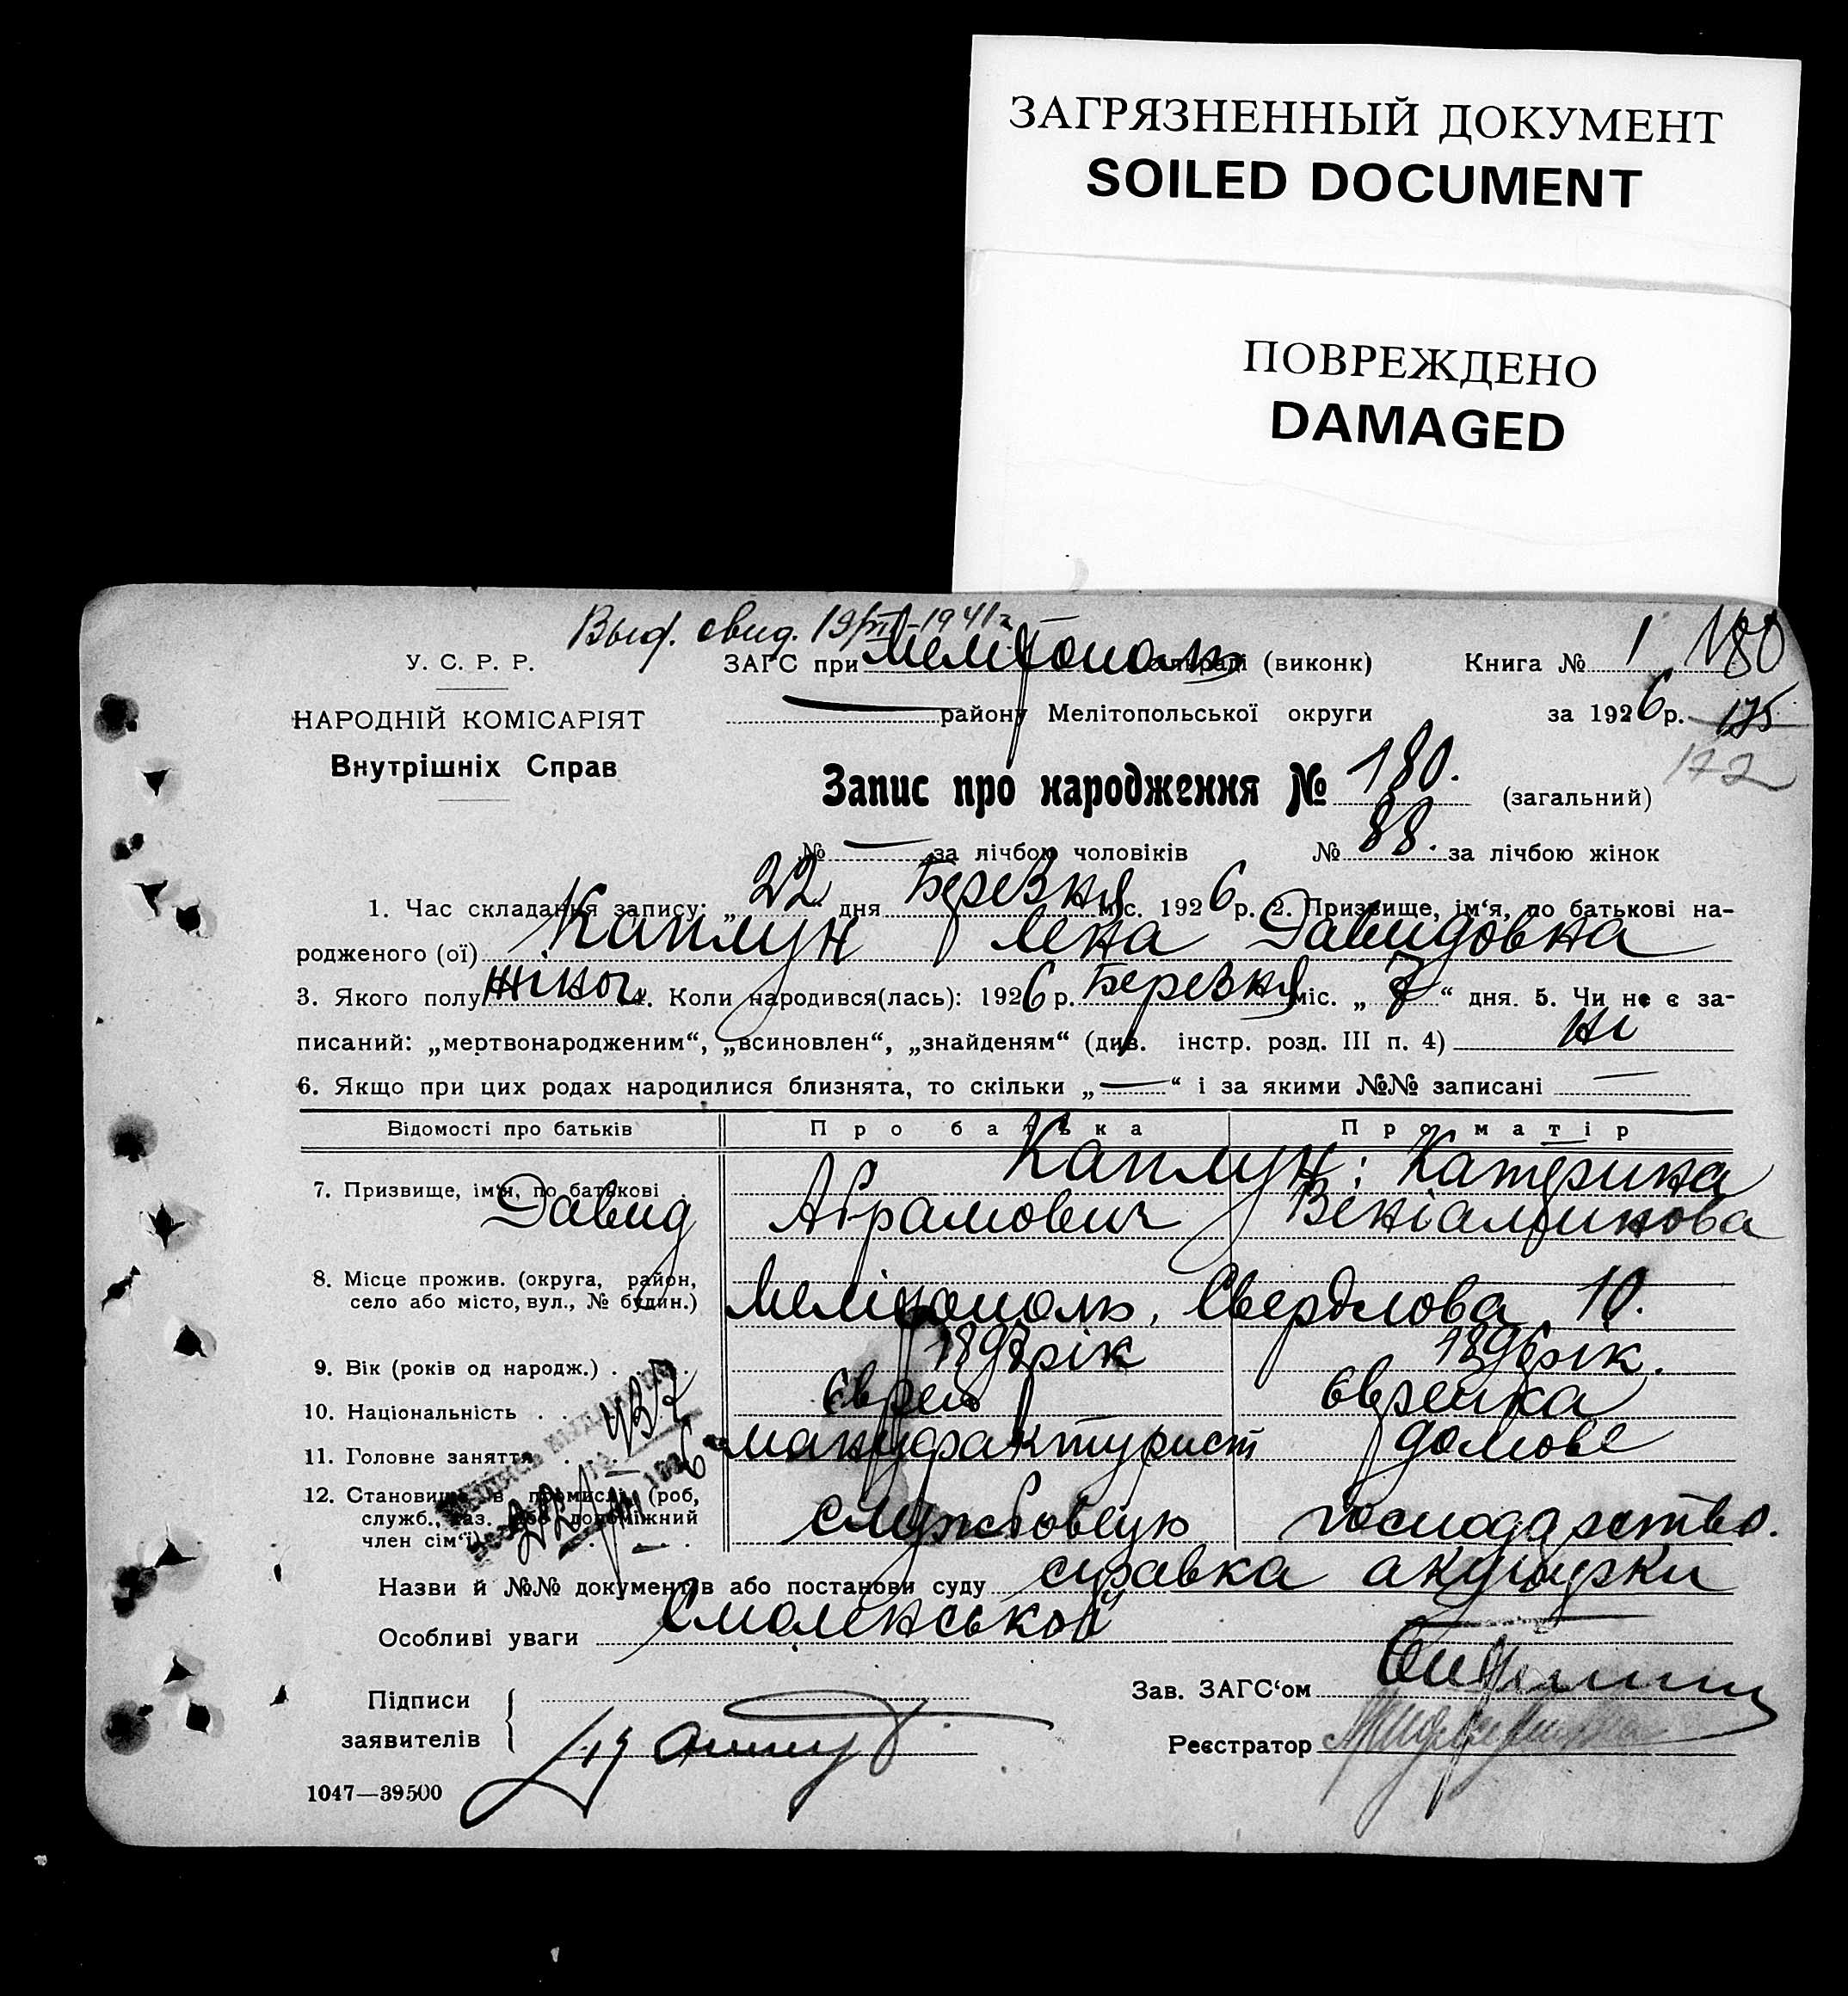 ЗАГРЯЗНЕННЫЙ ДОКУМЕНТ
SOILED DOCUMENT
ПОВРЕЖДЕНО
DAMAGED
Выд. свид. 19/VI-1941г
У. С. Р. Р. ЗАГС при Мелітополь (виконк) Книга № 1 180
НАРОДНІЙ КОМІСАРІЯТ — району Мелітопольської округи за 1926 р. 175
Внутрішніх Справ
172
Запис про народження № 180. (загальний)
№ — за лічбою чоловіків № 88. за лічбою жінок
1. Час складання запису: „22 дня Березня міс. 1926 р. 2. Призвище, ім‘я, по батькові на-
родженого (ої) Каплун Лена Давидовна
3. Якого полу жіноч. Коли народився(лась): 1926 р. Березня міс. „7“ дня. 5. Чи не є за-
писаний: „мертвонародженим“, „всиновлен“, „знайденям“ (див. інстр. розд. III п. 4) Ні
6. Якщо при цих родах народилися близнята, то скільки „—“ і за якими №№ записані —
Відомості про батьків Про батька Про матір
7. Призвище, ім‘я, по батькові Каплун: Катерина
Давид Абрамович Веніамінова
8. Місце прожив. (округа, район,
село або місто, вул., № будин.) Мелітополь, Свердлова 10.
9. Вік (років од народж.) . 1898 рік 1896 рік.
10. Національність . . Єврей Єврейка
11. Головне заняття . мануфактурист домове
12. Становище в промислі (роб,
служб., газ. або допоміжний
член сім‘ї) службовець господарство.
Назви й №№ документів або постанови суду справка акушерки
Особливі уваги Смоленської
Підписи
заявителів
Зав. ЗАГС‘ом
Реєстратор
1047—39500